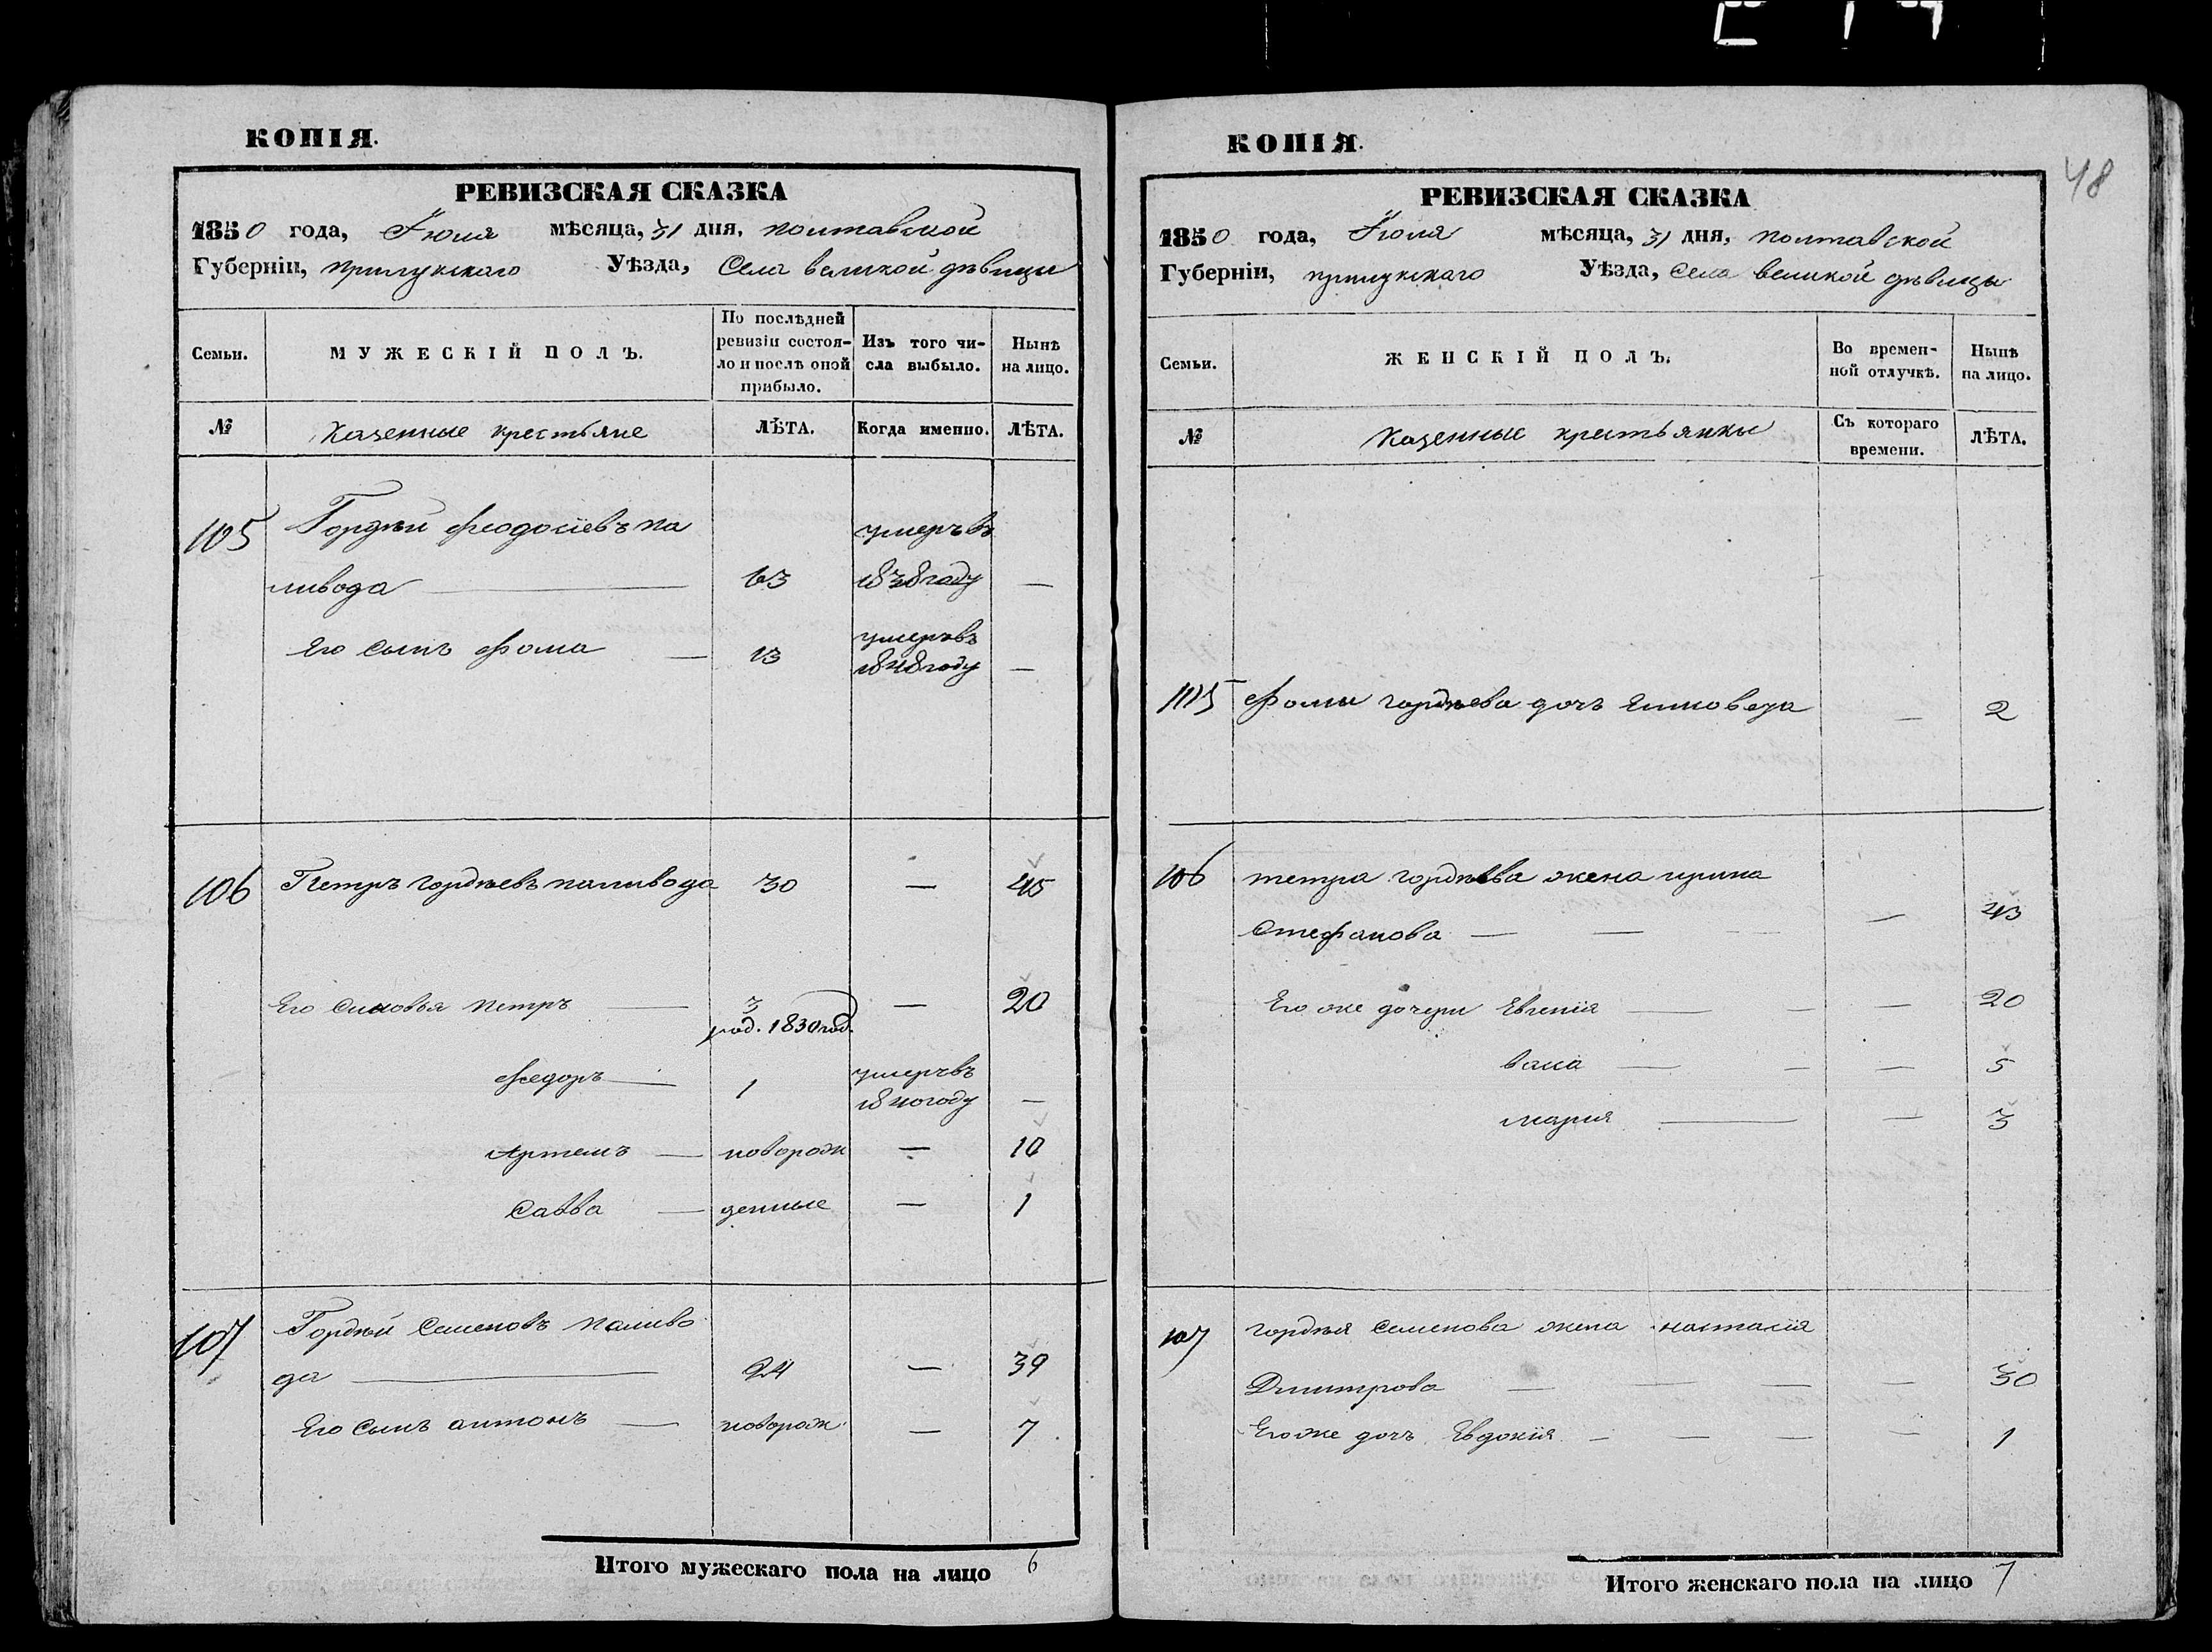 КОПІЯ.
РЕВИЗСКАЯ СКАЗКА
1850 года, Іюля мѣсяца, 31 дня, полтавской
Губерніи, прилукскаго Уѣзда, Села великой дѣвицы
Семьи.
МУЖЕСКІЙ ПОЛЪ.
По послѣдней
ревизіи состоя-
ло и послѣ оной
прибыло.
Изъ того чи-
сла выбыло.
Нынѣ
на лицо.
№ Казенные крестьяне ЛѢТА. Когда именно. ЛѢТА.
105 Гордѣй феодосіевъ па умеръ въ
ливода — 63 1838 году —
Его сынъ фома — 13 умеръ въ
1848 году —
106 Петръ гордѣевъ паливода 30 — 45
Его синовья петръ — 3 — 20
род. 1830 год.
федоръ — 1 умеръ въ
1840 году —
Артемъ — новорож — 10
Савва — денные — 1
107 Гордѣй Семеновъ паливо
да — 24 — 39
Его сынъ антонъ — новорож. — 7.
Итого мужескаго пола на лицо 6
КОПІЯ.
48
РЕВИЗСКАЯ СКАЗКА
1850 года, Іюля мѣсяца, 31 дня, полтавской
Губерніи, прилукскаго Уѣзда, села великой дѣвицы
Семьи.
ЖЕНСКІЙ ПОЛЪ.
Во времен-
ной отлучкѣ.
Нынѣ
на лицо.
№ Казенные крестьянки Съ котораго
времени. ЛѢТА.
105 фомы гордѣева дочъ — 2
106 петра гордѣева жена ирина
Стефанова — — — — 43
Его же дочери Евгенія — — — 20
— — — 5
марія — — 3
107 гордѣя семенова жена настасія
Дмитрова — — — — 30
Его же дочъ Евдокія — — — — 1
Итого женскаго пола на лицо 7